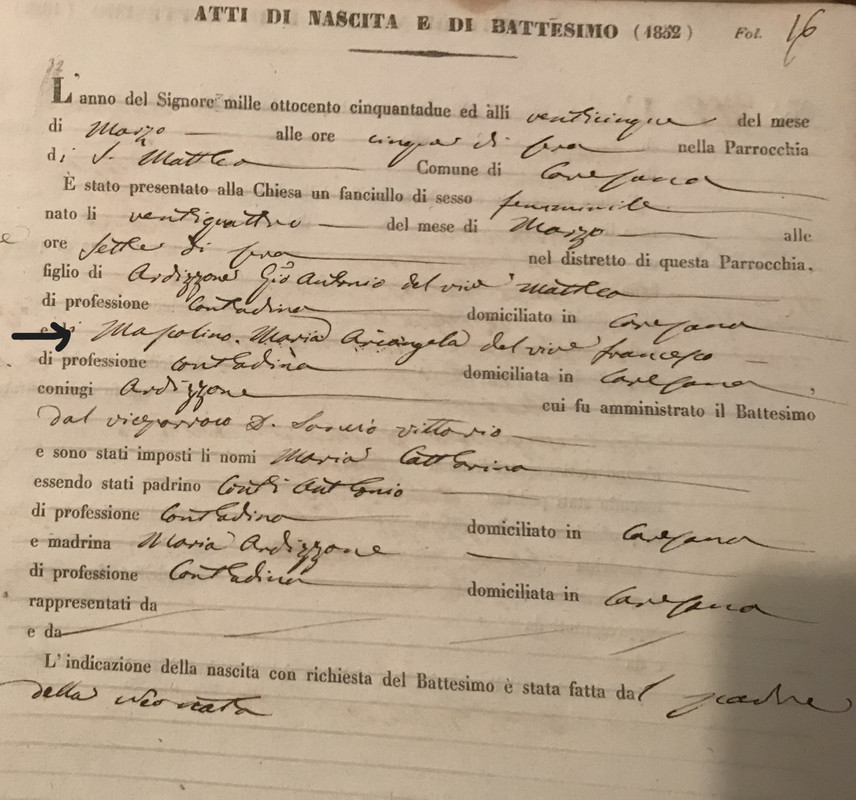 ATTI DI NASCITA E DI BATTESIMO (1852) Fol. 16
32
L'anno del Signore mille ottocento cinquantadue ed alli venticinque del mese
di Marzo alle ore cinque di sera nella Parrocchia
di S. Matteo Comune di Caresana
È stato presentato alla Chiesa un fanciullo di sesso femminile
nato li ventiquattro del mese di Marzo alle
ore sette di sera nel distretto di questa Parrocchia,
figlio di Ardizzone Gio Antonio del vivo Matteo
di professione Contadino domiciliato in Caresana
e di Masolino Maria Arcangela del vivo francesco
di professione contadina domiciliata in Caresana,
coniugi Ardizzone cui fu amministrato il Battesimo
dal viceparroco D. vittorio
e sono stati imposti li nomi Maria Catterina
essendo stati padrino Conti Antonio
di professione Contadino domiciliato in Caresana
e madrina Maria Ardizzone
di professione Contadina domiciliata in Caresana
rappresentati da
e da
L'indicazione della nascita con richiesta del Battesimo è stata fatta dal padre
della neonata